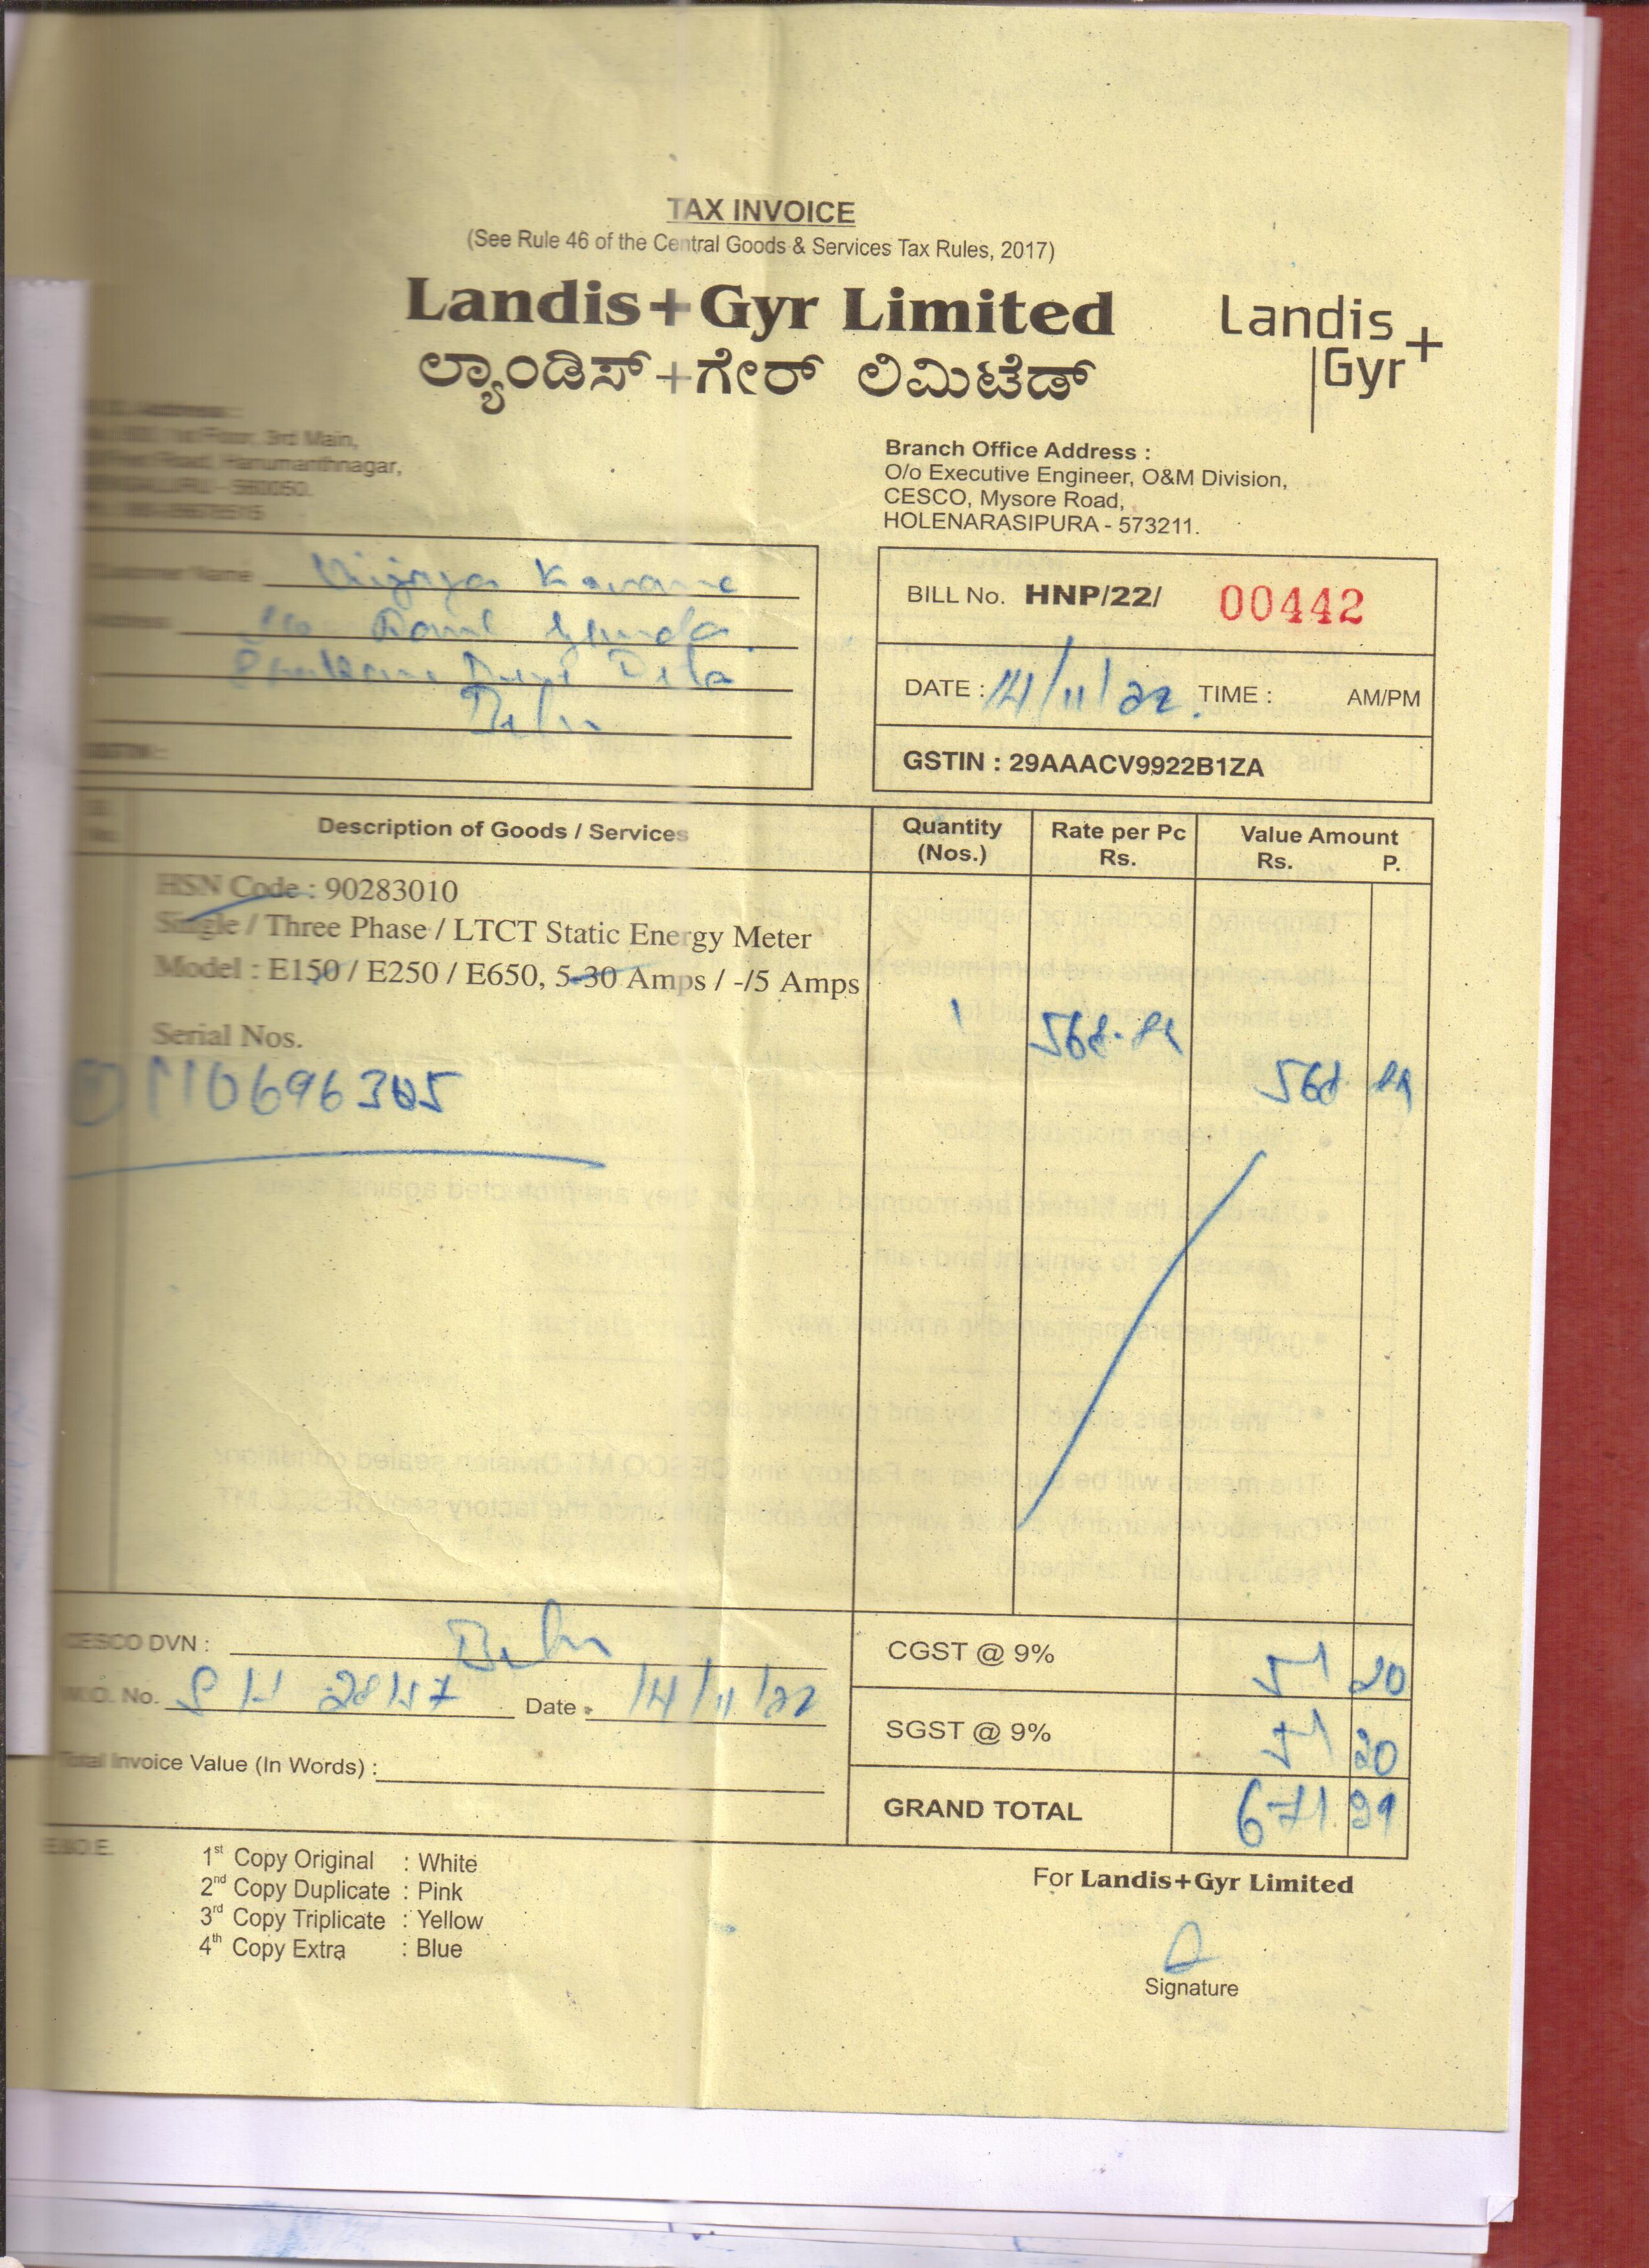 TAX INVOICE
(See Rule 46 of the Central Goods & Services Tax Rules, 2017)
Landis+Gyr Limited
ಲ್ಯಾಂಡಿಸ್+ಗೇರ್ ಲಿಮಿಟೆಡ್
Landis+
Gyr
Address :
1st Floor, 3rd Main,
Road, Hanumanthnagar,
- 560050.
Branch Office Address :
O/o Executive Engineer, O&M Division,
CESCO, Mysore Road,
HOLENARASIPURA - 573211.
Customer Name Vijaya
Address
GSTIN :
BILL No. HNP/22/ 00442
DATE : 14/11/22. TIME : AM/PM
GSTIN : 29AAACV9922B1ZA
Description of Goods / Services Quantity (Nos.) Rate per Pc Rs. Value Amount Rs. P.
HSN Code : 90283010
Single / Three Phase / LTCT Static Energy Meter
Model : E150 / E250 / E650, 5-30 Amps / -/5 Amps
Serial Nos.
1 568.89
110696305 568 89
CESCO DVN :
CGST @ 9% 51 20
W.O. No. Date : 14/11/22
SGST @ 9% 51 20
Total Invoice Value (In Words) :
GRAND TOTAL 671 29
E.&O.E.
1st Copy Original : White
2nd Copy Duplicate : Pink
3rd Copy Triplicate : Yellow
4th Copy Extra : Blue
For Landis+Gyr Limited
Signature